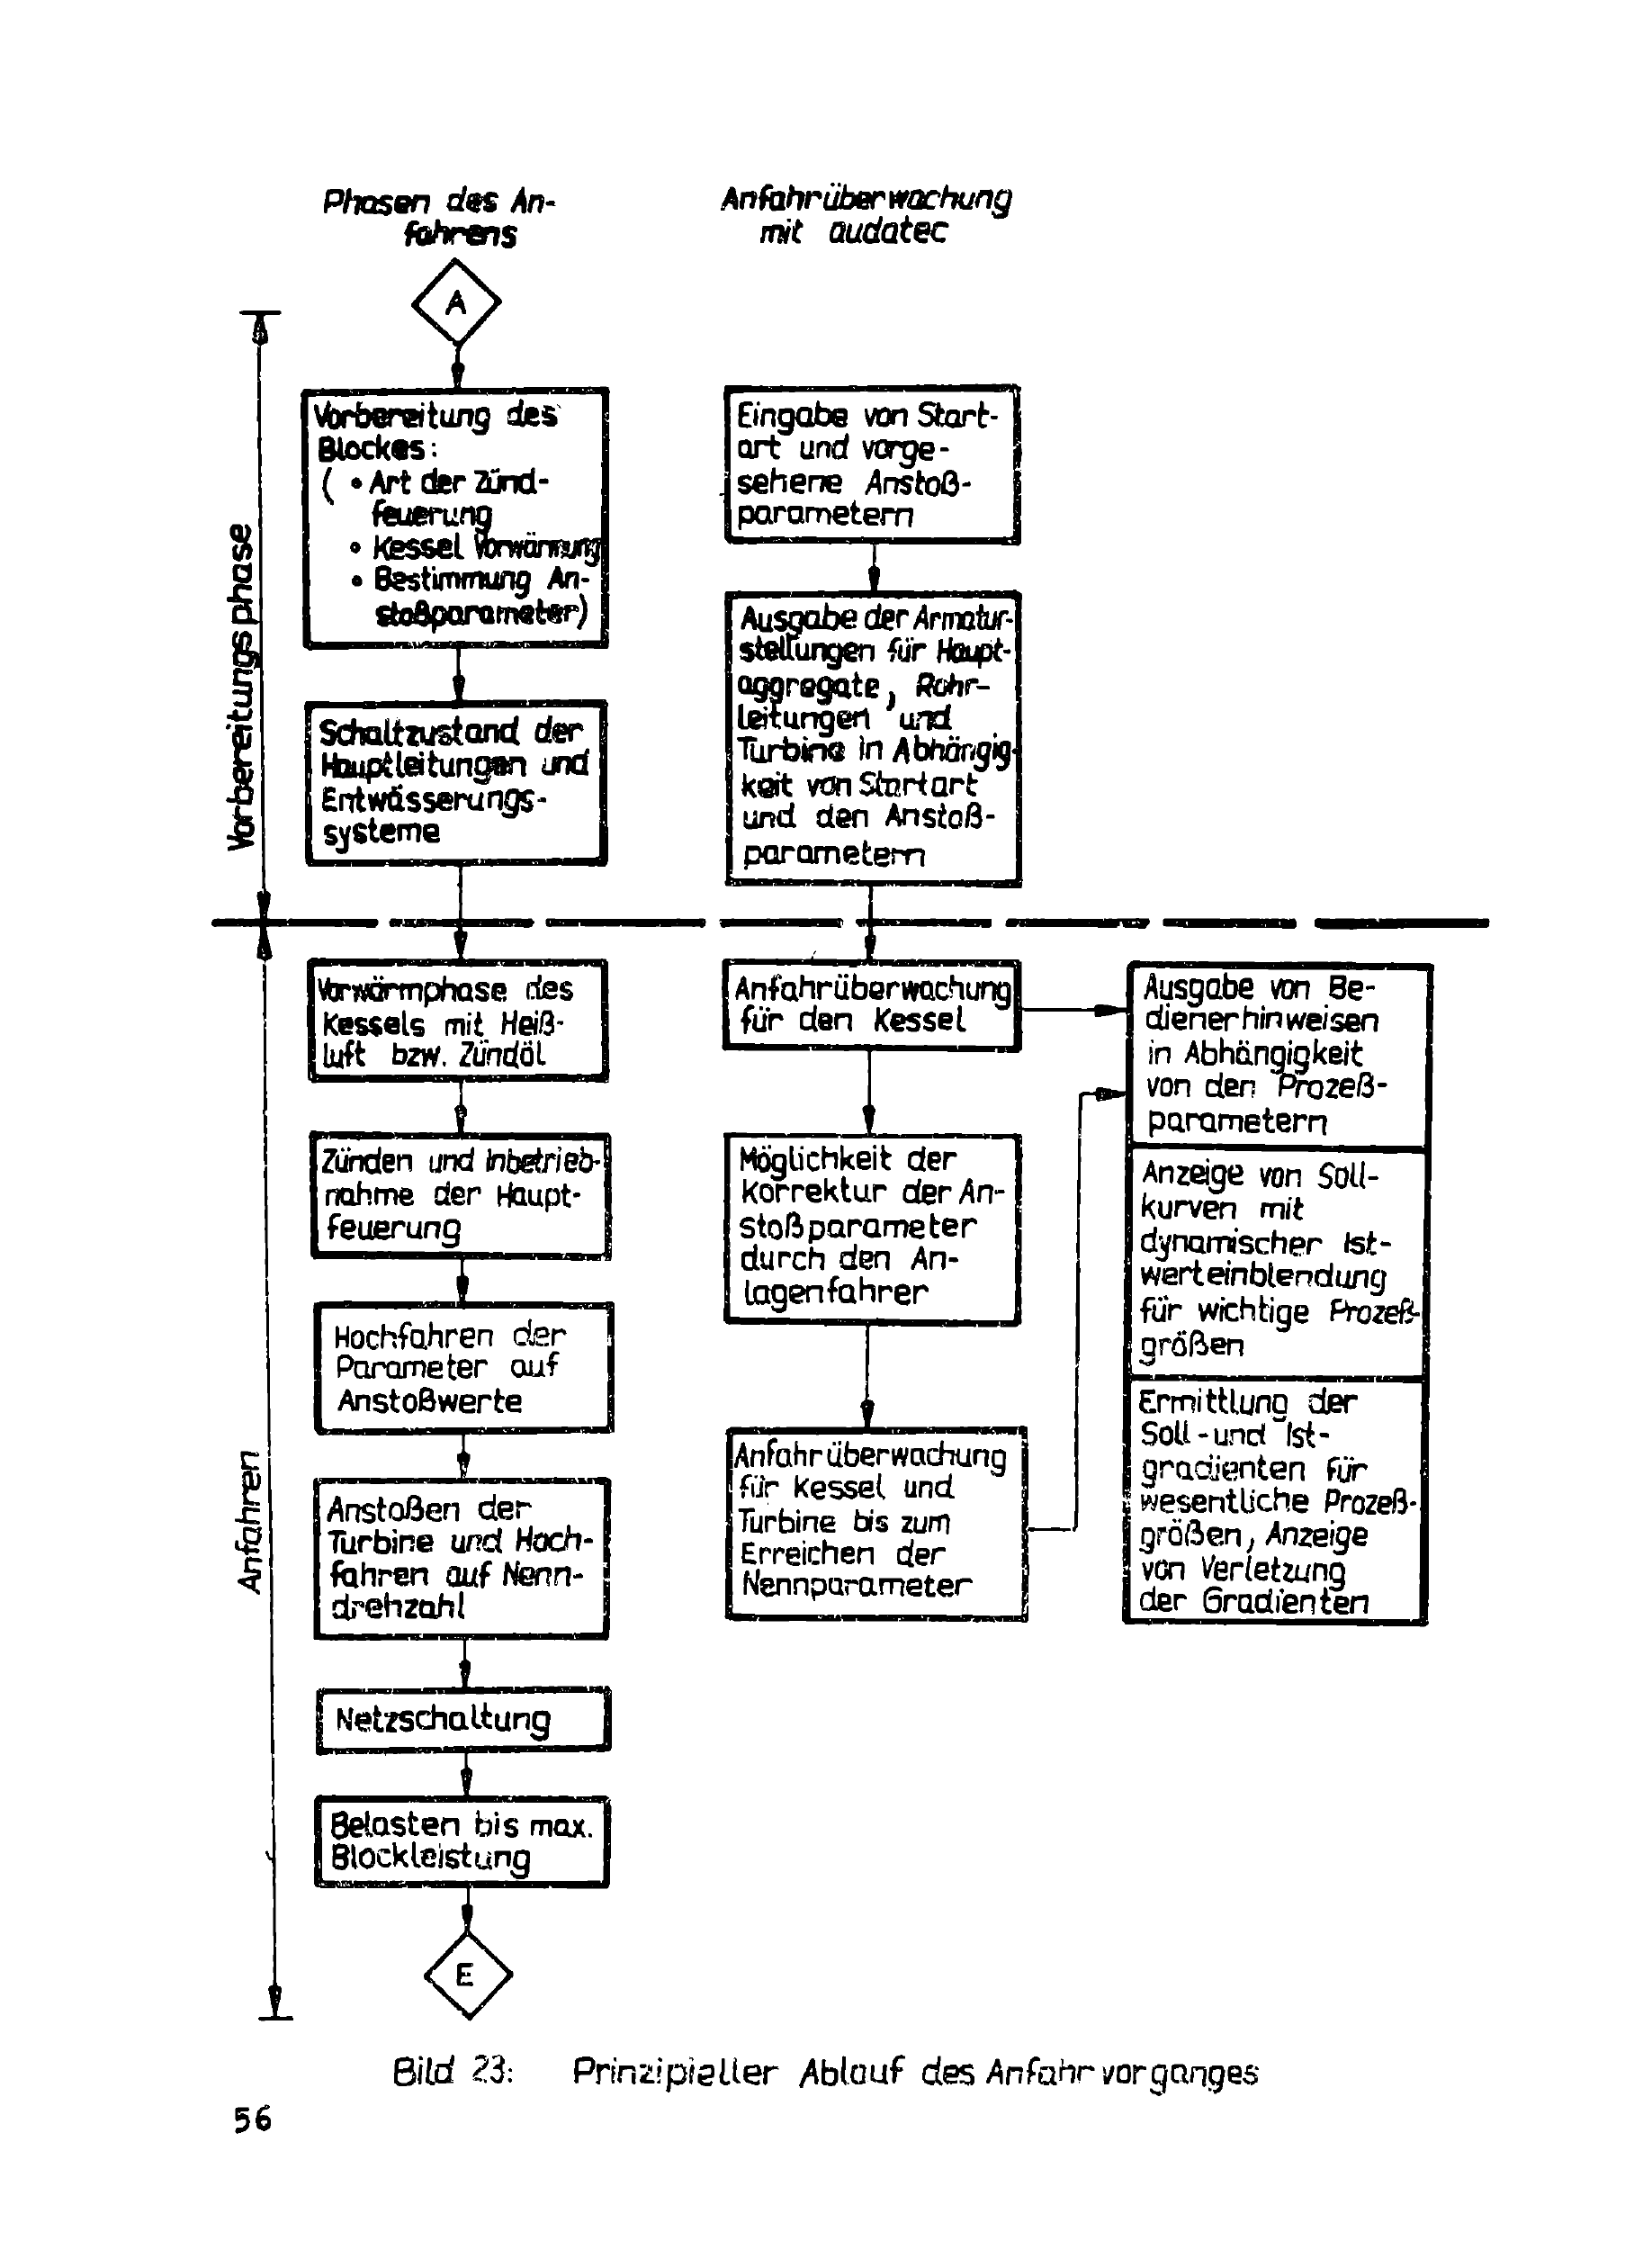 Phasen des An-
fahrens
Anfahrüberwachung
mit audatec
A
Vorbereitungsphase
Vorbereitung des
Blockes:
( • Art der Zünd-
feuerung
• Kessel Vorwärmung
• Bestimmung An-
stoßparameter)
Schaltzustand der
Hauptleitungen und
Entwässerungs-
systeme
Eingabe von Start-
art und vorge-
sehene Anstoß-
parametern
Ausgabe der Armatur-
stellungen für Haupt-
aggregate, Rohr-
leitungen und
Turbine in Abhängig-
keit von Startart
und den Anstoß-
parametern
Anfahren
Vorwärmphase des
Kessels mit Heiß-
luft bzw. Zündöl
Zünden und Inbetrieb-
nahme der Haupt-
feuerung
Hochfahren der
Parameter auf
Anstoßwerte
Anstoßen der
Turbine und Hoch-
fahren auf Nenn-
drehzahl
Netzschaltung
Belasten bis max.
Blockleistung
E
Anfahrüberwachung
für den Kessel
Möglichkeit der
Korrektur der An-
stoßparameter
durch den An-
lagenfahrer
Anfahrüberwachung
für Kessel und
Turbine bis zum
Erreichen der
Nennparameter
Ausgabe von Be-
dienerhinweisen
in Abhängigkeit
von den Prozeß-
parametern
Anzeige von Soll-
kurven mit
dynamischer Ist-
werteinblendung
für wichtige Prozeß-
größen
Ermittlung der
Soll- und Ist-
gradienten für
wesentliche Prozeß-
größen, Anzeige
von Verletzung
der Gradienten
Bild 23: Prinzipieller Ablauf des Anfahrvorganges
56